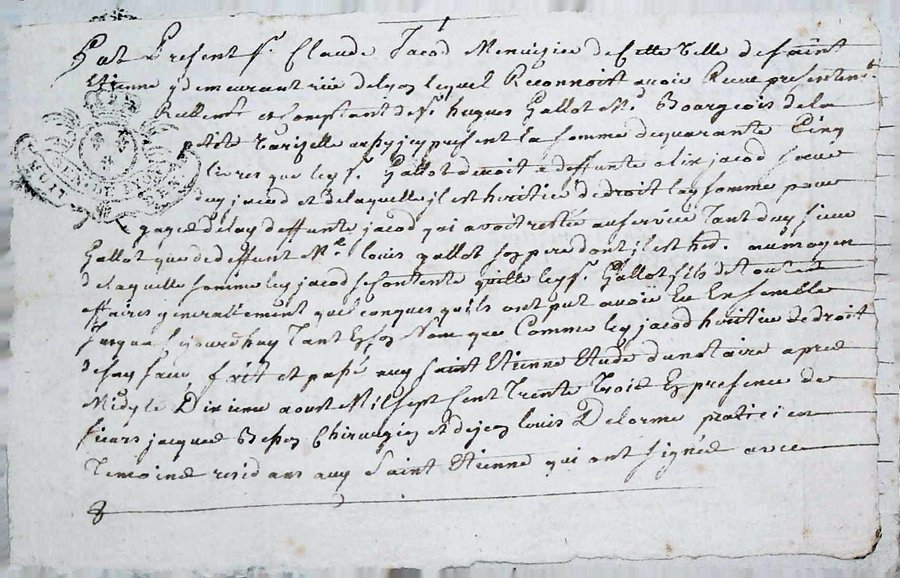 Fut Present Sr. Claude Jacod Menuizier de cette ville de saint
Etienne y demeurant rüe de lyon lequel Reconnoit avoir Receu presentemt.
Reellemt. et Comptant de Sr. hugues Gallot Md. Bourgeois de la
petite Varizelle aussy icy present la somme de quarante Cinq
livres que ledt Sr. Gallot devoit a deffunte alix jacod soeur
dud jacod et de laquelle il est heritier de droit lad somme pour
gages de lad deffunte jacod qui avoit restée au service Tant dud sieur
Gallot que de deffunt Me. louis gallot son pere dont il est hed. au moyen
de laquelle somme led jacod se contente quitte led Sr. Gallot fils de toutes
affaires generallement quelconques qu'ils ont put avoir Eu Ensemble
Jusqua ajourdhuy Tant En son Nom que Comme led jacod heritier de droit
de sad soeur fait et passé aud saint Etienne Etude du notaire apres
Midy le Dixieme aoust Mil sept Cent Trente Trois En presence de
sieurs jacques Chirurgien et de jean louis Delorme praticien
Temoins residans aud Saint Etienne qui ont signés avec
HUIT